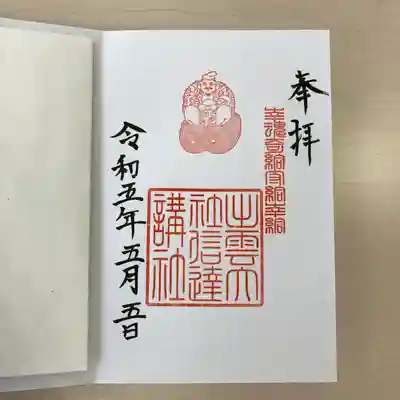 奉拝
幸魂奇魂守給幸給
出雲大
社信達
講社
令和五年五月五日